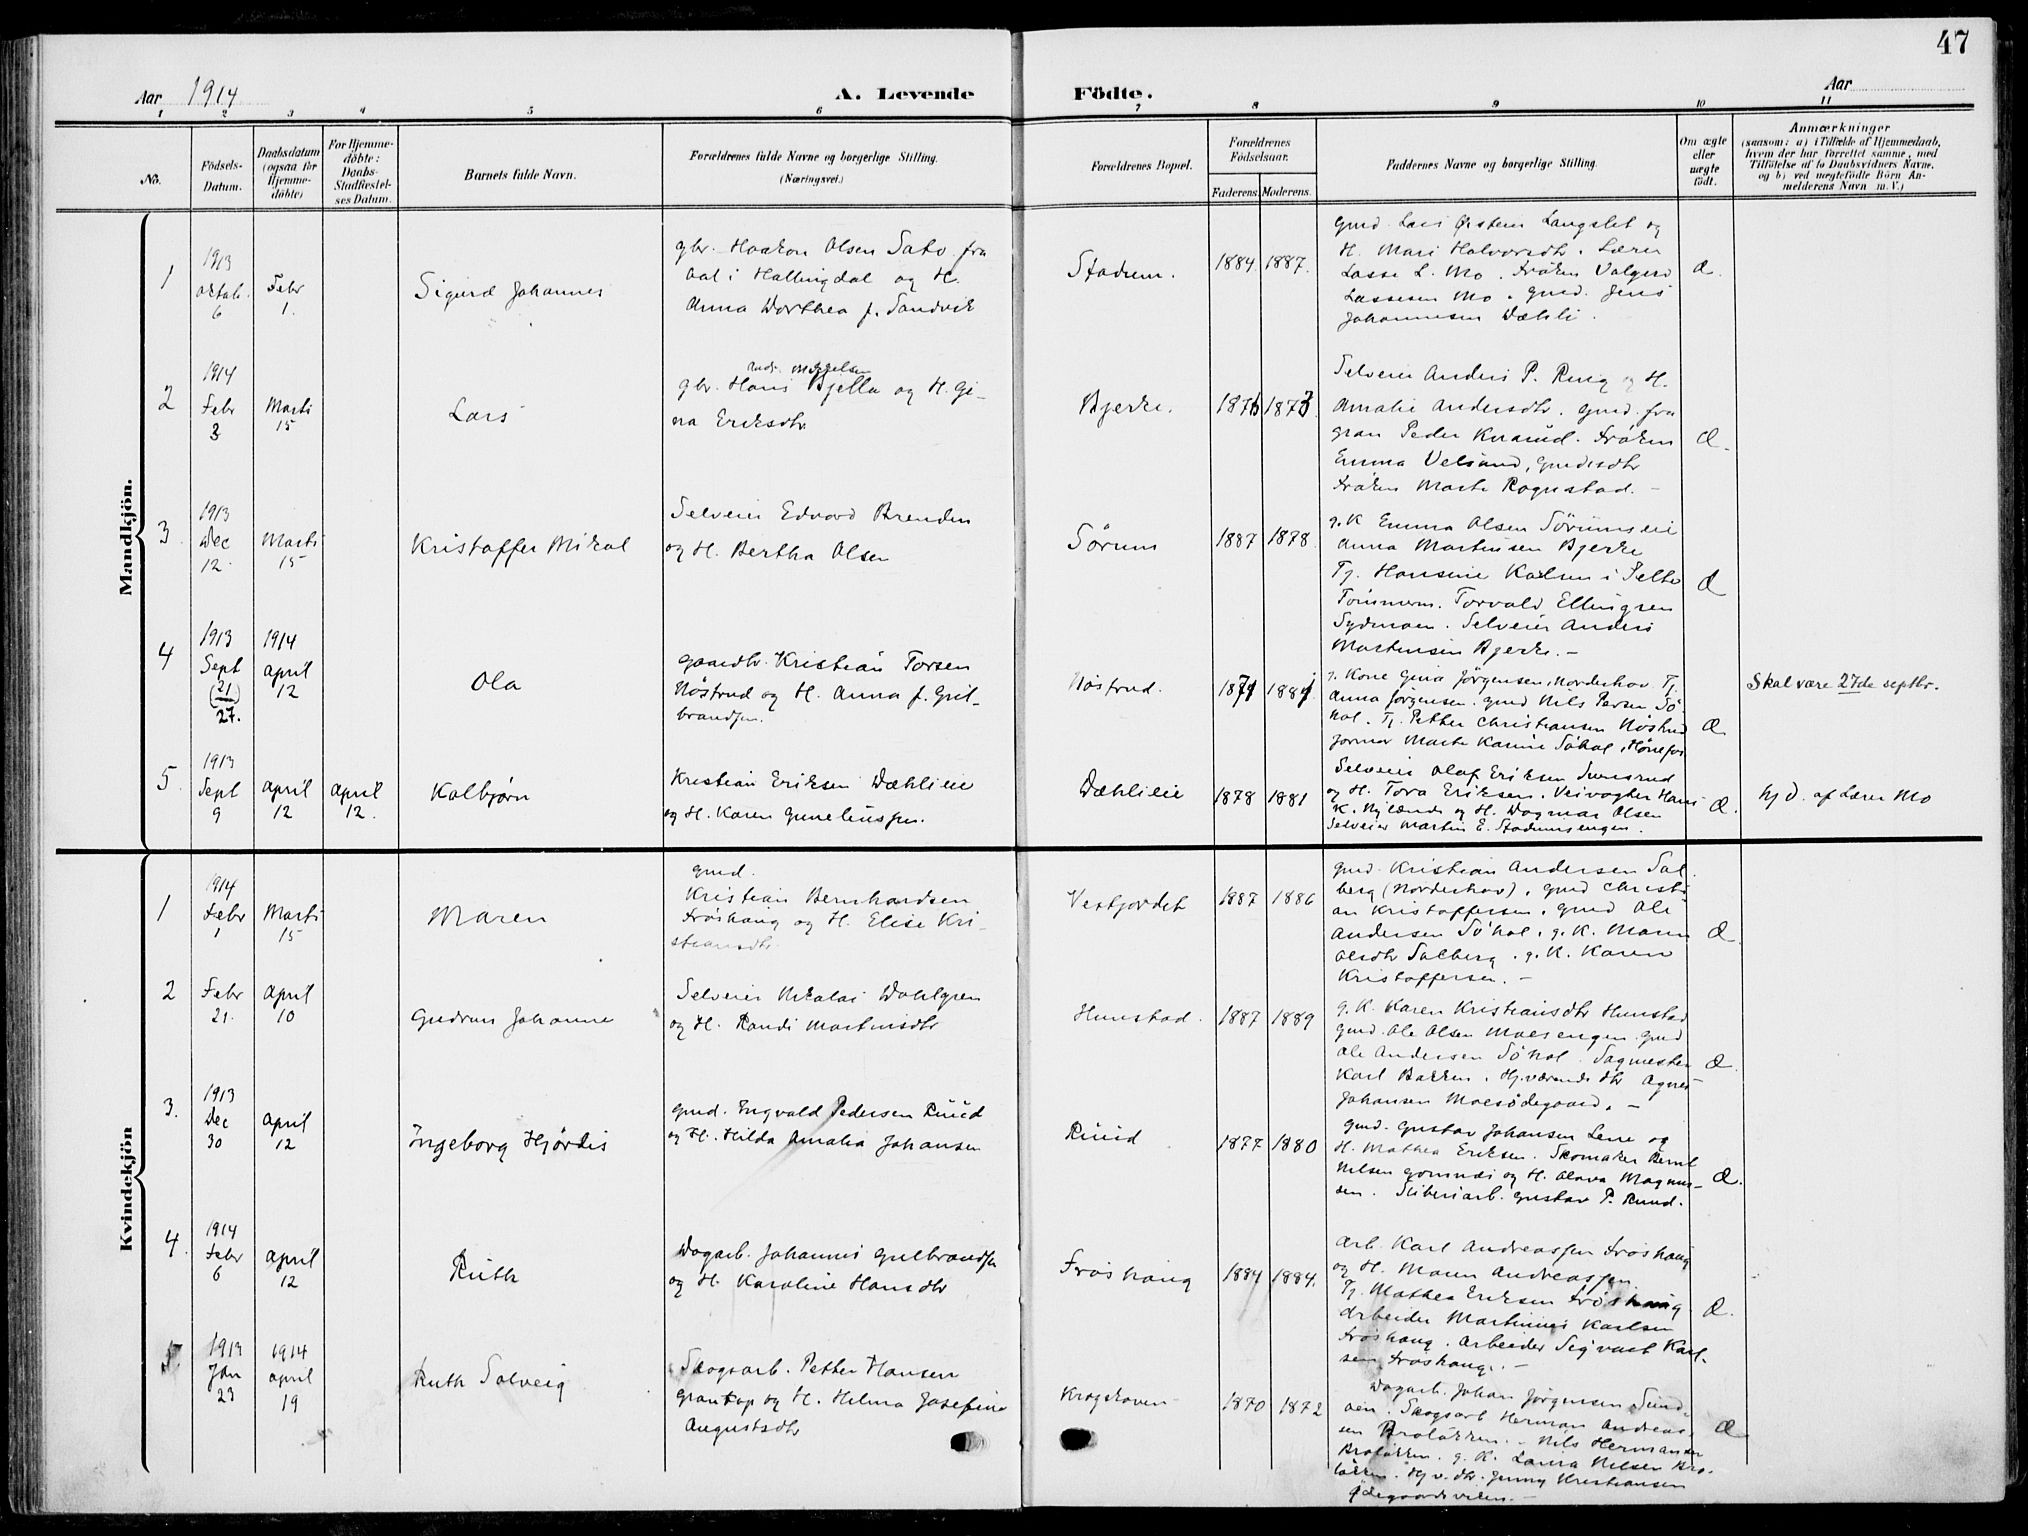 47
Aar 1914
A. Levende Födte.
Aar
1 2 3 4 5 6 7 8 9 10 11
No.
Födsels-
Datum.
Daabsdatum
(ogsaa for
Hjemme-
döbte)
For Hjemme-
döbte:
Daabs-
Stadfæstel-
ses Datum.
Barnets fulde Navn.
Forældrenes fulde Navne og borgerlige Stilling.
(Næringsvei.)
Forældrenes Bopæl.
Forældrenes
Födselsaar.
Faderens. Moderens.
Faddernes Navne og borgerlige Stilling.
Om ægte
eller
uægte
födt.
Anmærkninger
(saasom: a) i Tilfælde af Hjemmedaab,
hvem der har forrettet samme, med
Tilföielse af to Daabsvidners Navne,
og b) ved uægtefödte Börn An-
melderens Navn m. V.)
Mandkjön.
1
1913
oktob.
6
Febr
1.
Sigurd Johannes
gbr. Haakon Olsen Sato fra
Aal i Hallingdal og H.
Anna Dorthea f. Sandvik
Stadum.
1884 1887.
gmd. Lars Østen Langslet og
H. Mari Halvorsdtr. Lærer
Lasse L. Mo. Frøken Valgerd
Lassesen Mo. gmd. Jens
Johannesen Dæhli.
Æ.
2
1914
Febr
3
Marts
15
Lars
gbr. Hans Bjella og H. Gi-
na Eriksdtr.
Bjerke.
1876 1873.
Selveier Anders P. Ruig og H.
Amalie Andersdtr. gmd. fra
Gran Peder Knarud. Frøken
Emma Velsand, gmdsdtr
Frøken Marte Rognstad. -
Æ.
3
1913
Dec
12.
Marts
15
Kristoffer Mikal
Selveier Edvard Brenden
og H. Bertha Olsen
Sørum
1887 1878
g. K Emma Olsen Sørumseie
Anna Martinsen Bjerke
Tj. Hansine Karlsen i Selte
Tømmerm. Torvald Ellingsen
Sydmoen. Selveier Anders
Martinsen Bjerke. -
Æ
4
1913
Sept
(21)
27.
1914
april
12
Ola
gaardbr. Kristian Torsen
Nøstrud og H. Anna f. Gul-
brandsen.
Nøstrud.
1871 1881
g. Kone Gina Jørgensen, Norderhov. Tj.
Anna Jørgensen. gmd Nils Persen Sø-
hol. Tj. Petter Christiansen Nøstrud
Jormor Marte Karine Søhol, Hønefos
Æ
Skal være 27de septbr.
5
1913
Sept
9
april
12
april
12.
Kolbjørn
Kristian Eriksen Dæhlieie
og H. Karen Guneliussen.
Dæhlieie
1878 1881
Selveier Olaf Eriksen Svensrud
og H. Tora Eriksen. Veivogter Hans
K. Nylænde og H. Dagmar Olsen
Selveier Martin E. Stadumsengen.
Æ.
hj D. af Lærer Mo
Kvindekjön
1
1914
Febr
1
Marts
15
Maren
gmd.
Kristian Bernhardsen
Frøshaug og H. Elise Kri-
stiansdtr.
Vestjordet
1887 1886
gmd. Kristian Andersen Sol-
berg (Norderhov). gmd Christi-
an Kristoffersen. gmd Ole
Andersen Søhol. g. K. Maren
Olsdtr Solberg. g. K. Karen
Kristoffersen. -
Æ.
2
Febr
21.
april
10
Gudrun Johanne
Selveier Nikolai Dahlgren
og H. Randi Martinsdtr
Hunstad.
1887 1889
g. K. Karen Kristiansdtr Hunstad
gmd. Ole Olsen Moesengen. gmd
Ole Andersen Søhol. Sagmester
Karl Bakken. Hj.værende dtr Agnes
Johansen Moesødegaard. -
Æ.
3.
1913
Dec
30
april
12
Ingeborg Hjørdis
gmd. Engvald Pedersen Ruud
og H. Hilda Amalia Johansen
Ruud
1877 1880
gmd. Gustav Johansen Lene og
H. Mathea Eriksen. Skomaker Bernt
Nilsen og H. Olava Magnus-
sen. Sliberiarb. Gustav P. Ruud.
Æ.
4.
1914
Febr
6
april
12
Ruth
Dagarb. Johannes Gulbrandsen
og H. Karoline Hansdtr
Frøshaug
1884 1884.
Arb. Karl Andreassen Frøshaug
og H. Maren Andreassen.
Tj. Mathea Eriksen Frøshaug
Arbeider Martinius Karlsen
Frøshaug. Arbeider Sigvart Karl-
sen Frøshaug. -
Æ.
5.
1913
Jan
23
1914
april
19
Ruth Solveig
Skogsarb. Petter Hansen
Grantop og H. Helma Josefine
Augustsdtr
Krogskoven
1870 1872
Dagarb. Johan Jørgensen Sund-
øen. Skogsarb Herman Andreas-
sen Braløkken. - Nils Hermansen
Braløkken. g. K. Laura Nilsen Bra-
løkken. Hj.v. dtr. Jenny Kristiansen
Ødegaardsveien. -
Æ